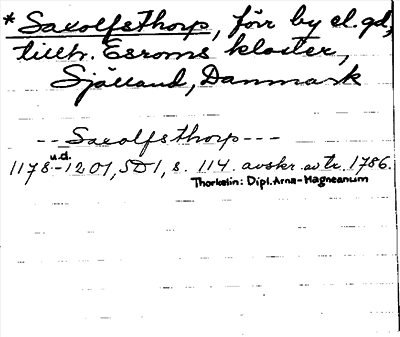 * Saxolfsthorp, förr by el. gd,
tillh. Esroms kloster,
Själland, Danmark
-- Saxolfsthorp ---
u.d.
1178-1201, SD1, s. 114. avskr. av tr. 1786.
Thorkelin: Dipl. Arna-Magneanum